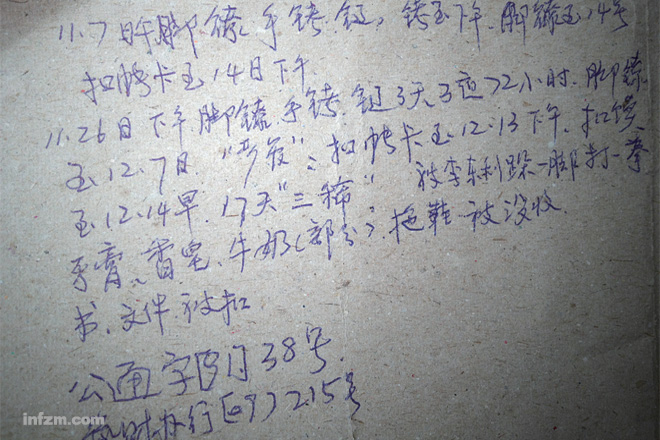 11.7日午脚镣手铐链,铐至下午.脚镣至14号
扣帐卡至14日下午.
11.26日下午.脚镣.手铐.链3天3夜72小时.脚镣
至12.7日."严管":扣帐卡至12.13下午.扣馍
至12.14早.17天"三稀". 被李东利跺一脚打一拳
牙膏、香皂、牛奶(部分).拖鞋被没收.
书.文件被扣
公通字[]38号.
财办行[09]215号
infzm.com